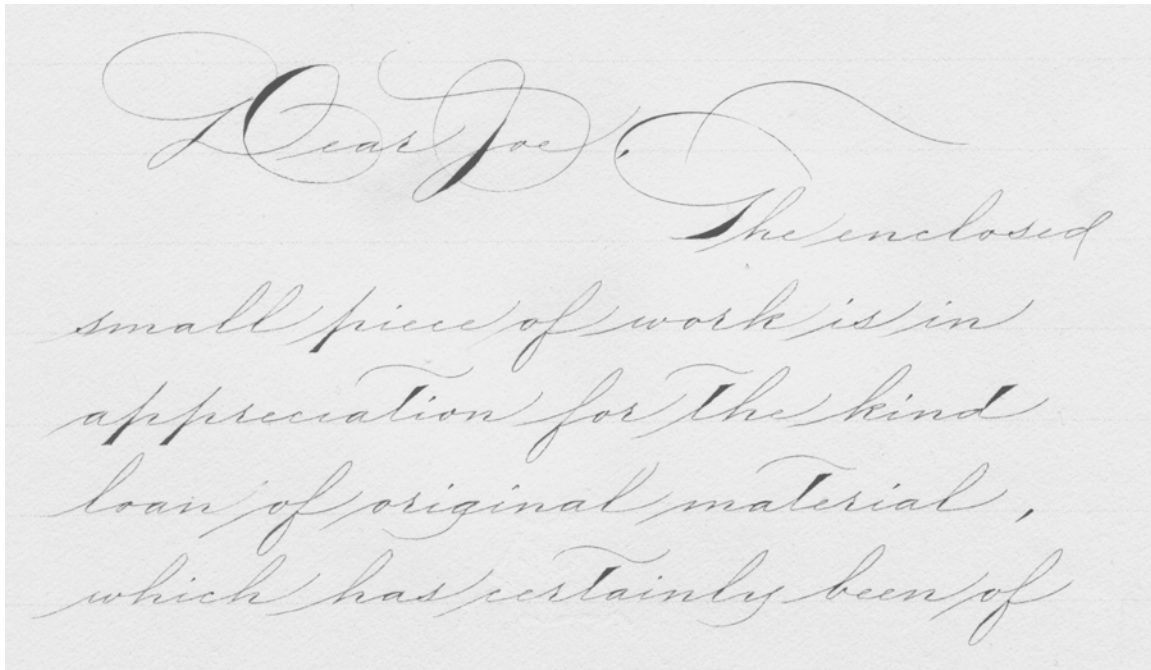 Dear Joe,
The enclosed
small piece of work is in
appreciation for the kind
loan of original material,
which has certainly been of